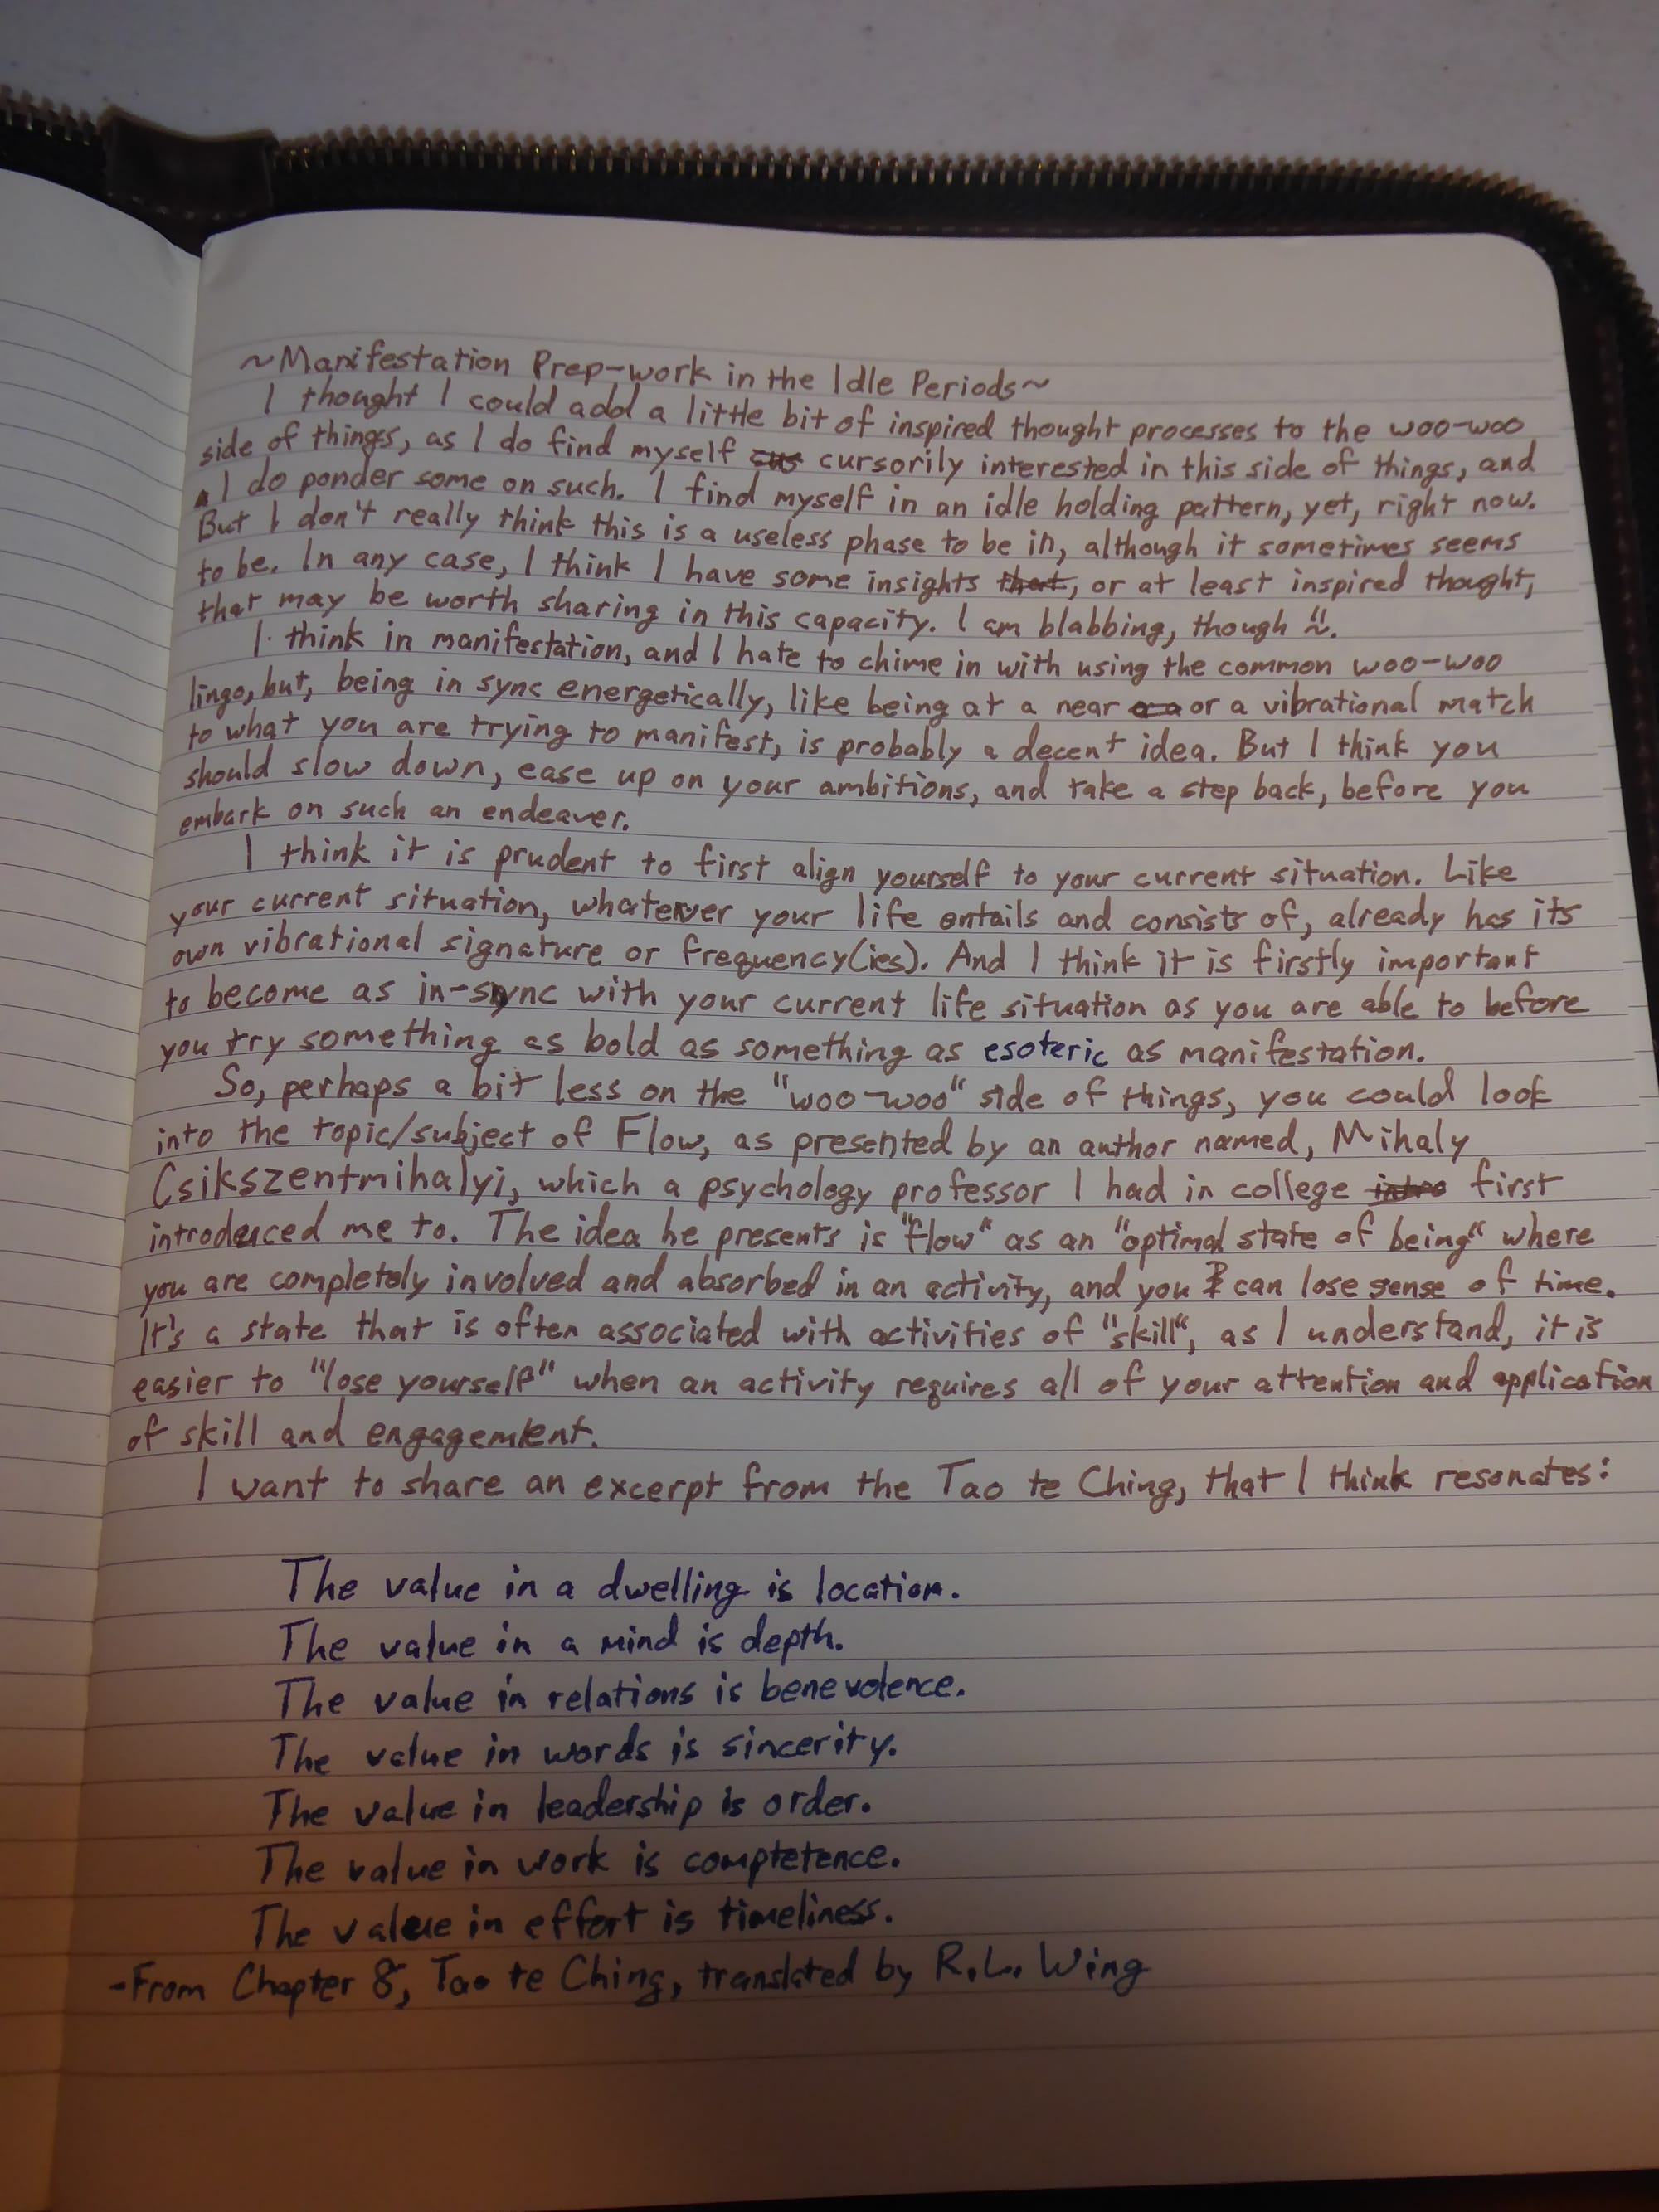 ~Manifestation Prep-work in the Idle Periods~
I thought I could add a little bit of inspired thought processes to the woo-woo
side of things, as I do find myself cursorily interested in this side of things, and
I do ponder some on such. I find myself in an idle holding pattern, yet, right now.
But I don't really think this is a useless phase to be in, although it sometimes seems
to be. In any case, I think I have some insights that, or at least inspired thought,
that may be worth sharing in this capacity. I am blabbing, though
I think in manifestation, and I hate to chime in with using the common woo-woo
lingo, but, being in sync energetically, like being at a near or a vibrational match
to what you are trying to manifest, is probably a decent idea. But I think you
should slow down, ease up on your ambitions, and take a step back, before you
embark on such an endeaver.
I think it is prudent to first align yourself to your current situation. Like
your current situation, whatever your life entails and consists of, already has its
own vibrational signature or frequency(ies). And I think it is firstly important
to become as in-sync with your current life situation as you are able to before
you try something as bold as something as esoteric as manifestation.
So, perhaps a bit less on the "woo-woo" side of things, you could look
into the topic/subject of Flow, as presented by an author named, Mihaly
Csikszentmihalyi, which a psychology professor I had in college intro first
introduced me to. The idea he presents is "flow" as an "optimal state of being" where
you are completely involved and absorbed in an activity, and you can lose sense of time.
It's a state that is often associated with activities of "skill", as I understand, it is
easier to "lose yourself" when an activity requires all of your attention and application
of skill and engagement.
I want to share an excerpt from the Tao te Ching, that I think resonates:
The value in a dwelling is location.
The value in a mind is depth.
The value in relations is benevolence.
The value in words is sincerity.
The value in leadership is order.
The value in work is comptetence.
The value in effort is timeliness.
-From Chapter 8, Tao te Ching, translated by R.L. Wing